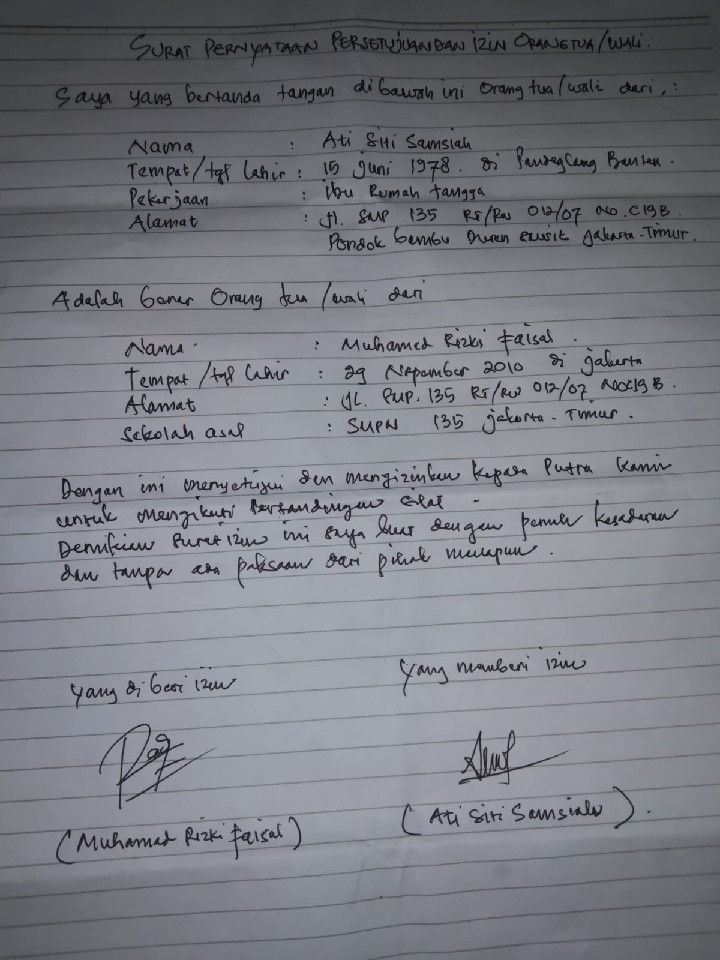 SURAT PERNYATAAN PERSETUJUAN DAN IZIN ORANGTUA/WALI.
Saya yang bertanda tangan dibawah ini Orang tua/wali dari, :
Nama : Ati Siti Samsiah
Tempat/tgl Lahir : 15 Juni 1978. di Pandeglang Banten.
Pekerjaan : ibu Rumah tangga
Alamat : Jl. SMP 135 RT/RW 012/07 NO.C19B
Pondok bambu Duren Sawit Jakarta-Timur.
Adalah benar Orang tua/wali dari
Nama : Muhamad Rizki Faisal.
Tempat/tgl Lahir : 29 Nopember 2010 di Jakarta
Alamat : JL. SMP. 135 RT/RW 012/07 NOC19B.
Sekolah asal : SMPN 135 Jakarta-Timur.
Dengan ini menyetujui dan mengizinkan kepada Putra kami
untuk mengikuti Pertandingan silat -
Demikian surat izin ini saya buat dengan penuh kesadaran
dan tanpa ada paksaan dari pihak manapun.
Yang di beri izin
Yang memberi izin
(Muhamad Rizki Faisal)
(Ati Siti Samsiah).